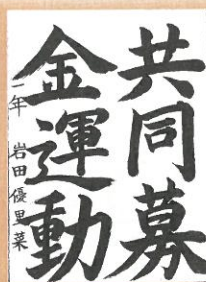 共同募
金運動
一年 岩田優里菜